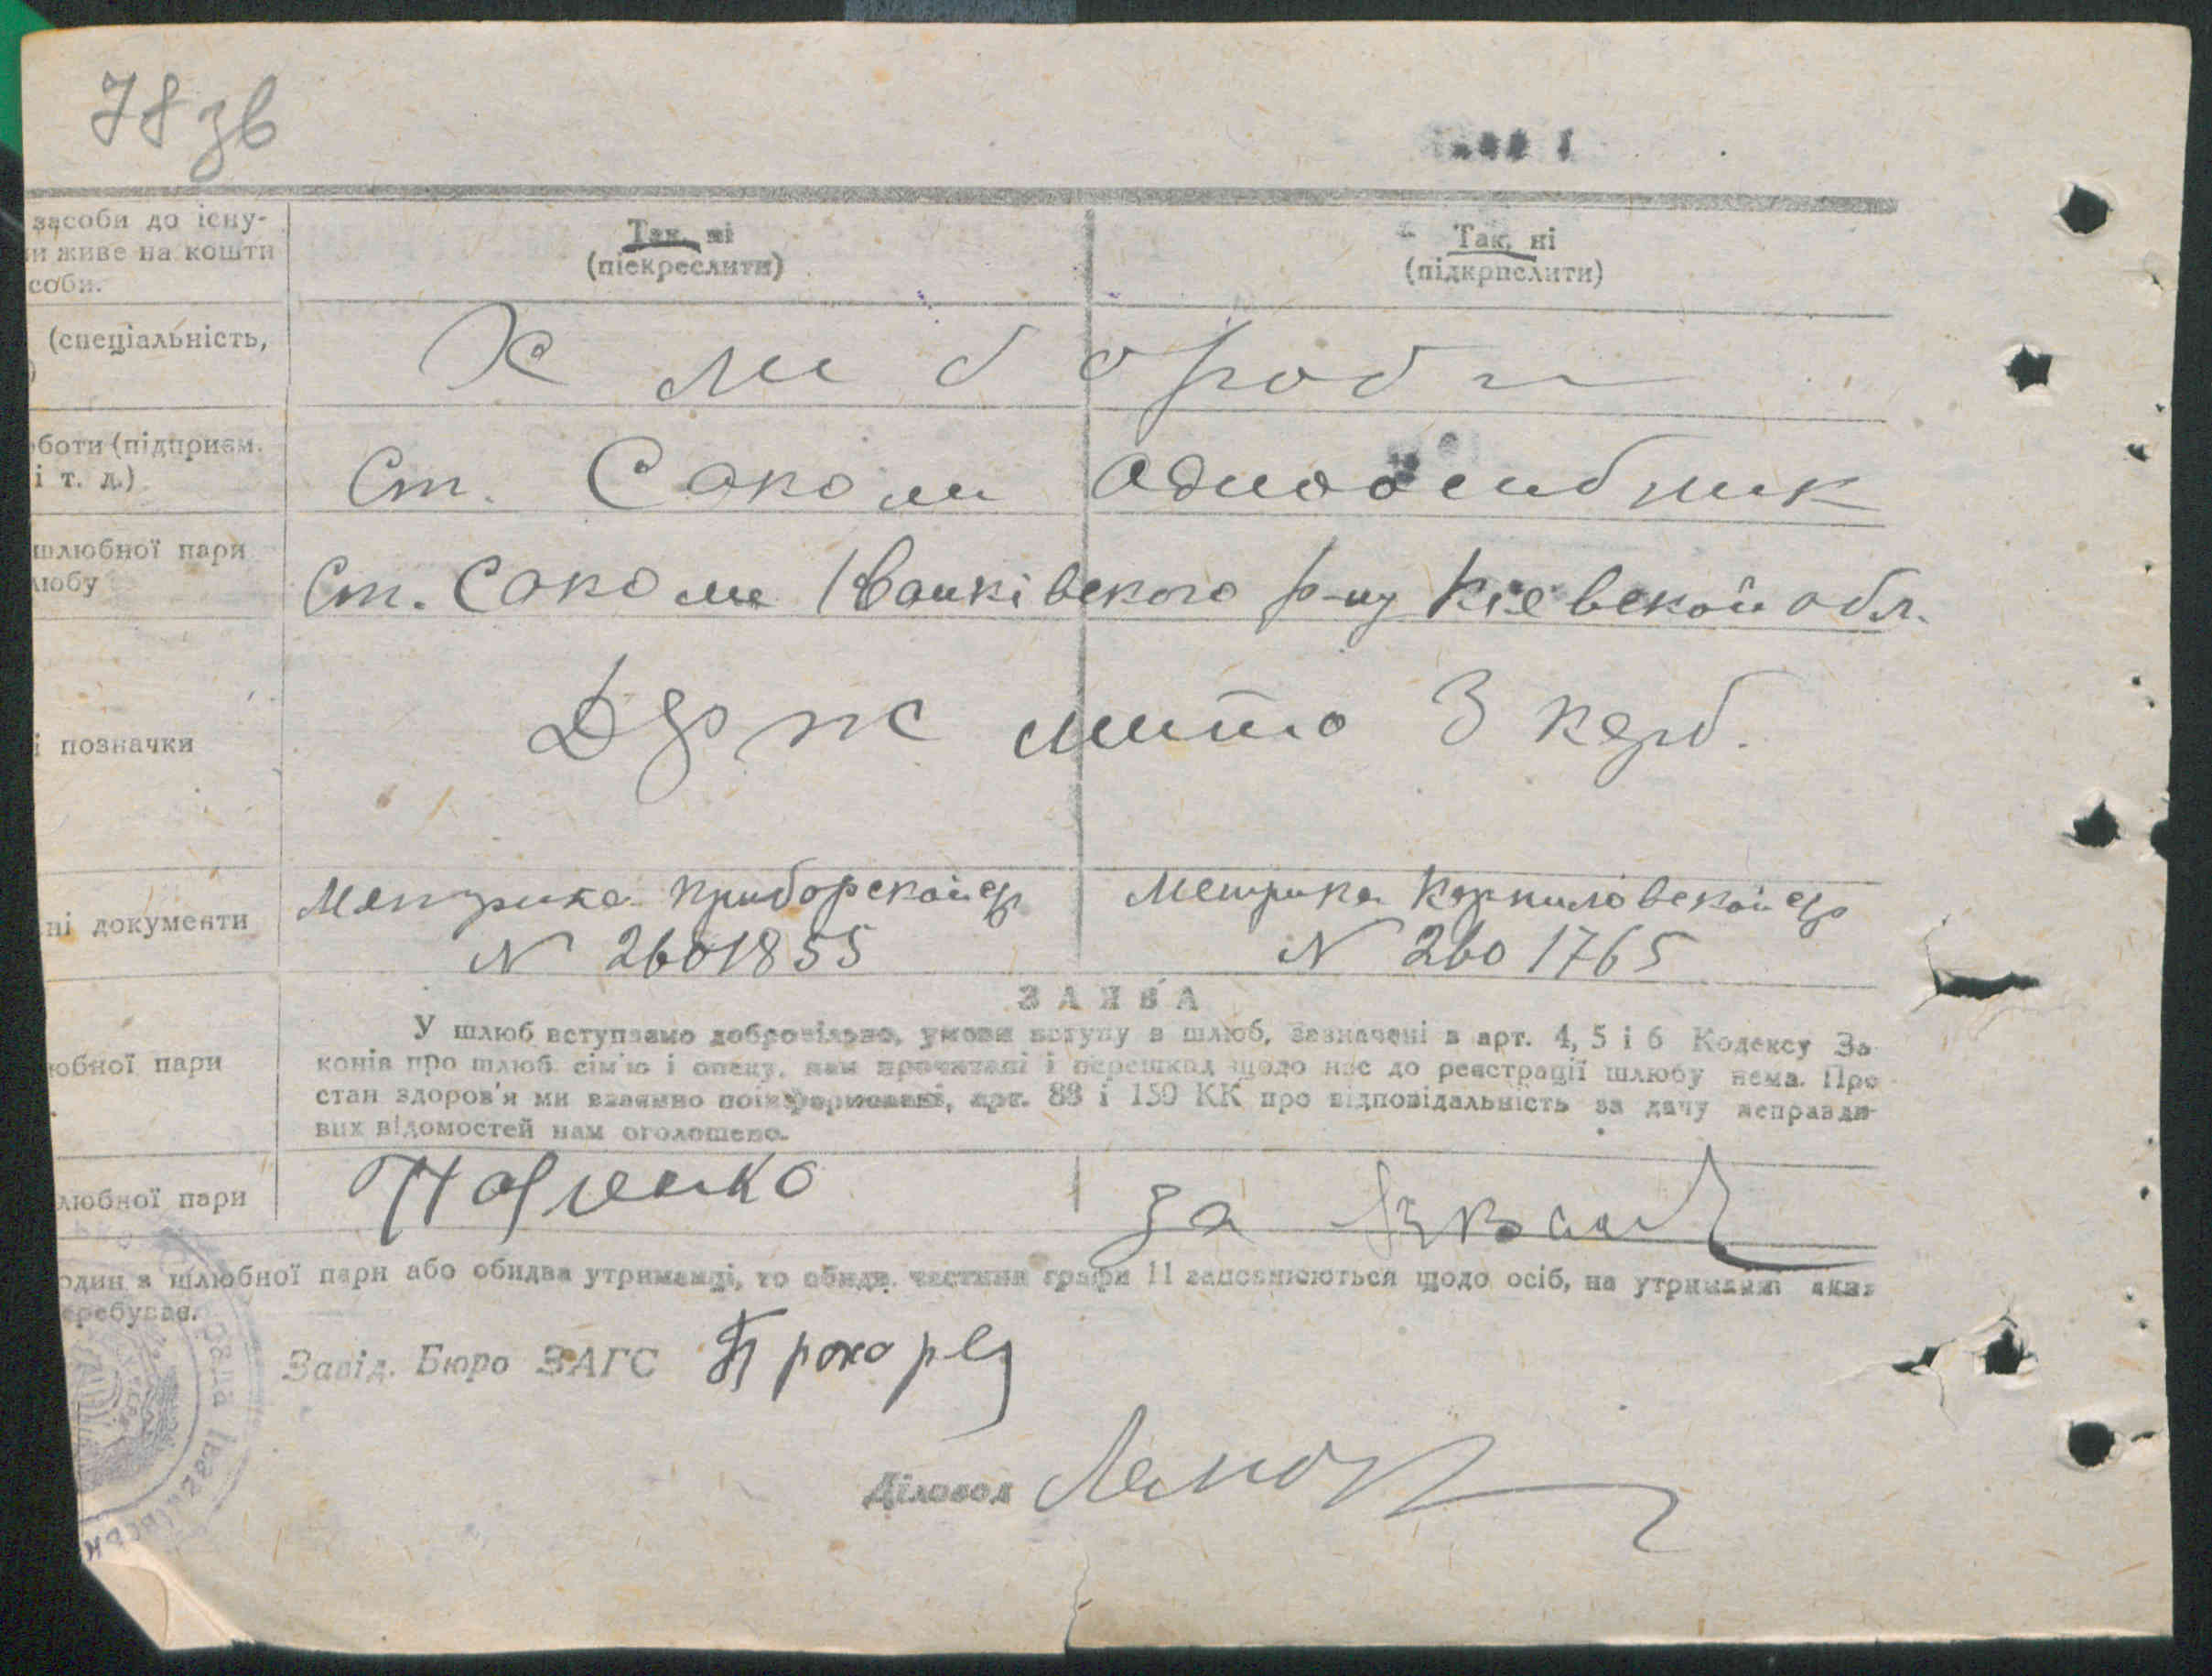 78 зв
засоби до існу-
и живе на кошти
соби.
Так, ні
(піекреслити)
Так, ні
(підкрпслити)
(спеціальність,
)
Хлибороби
боти (підприєм.
і т. д.)
Ст. Соколи одноосибник
шлюбної пари
любу
Ст. Соколи Іванківского р-ну Кіевской обл.
і позначки
Держ мито 3 карб.
ні документи
Метрика Приборской ср
N 2601855
Метрика Карпиловской ср
N 2601765
ЗАЯВА
юбної пари
У шлюб вступаємо добровільно, умови вступу в шлюб, зазначені в арт. 4, 5 і 6 Кодексу За-
конів про шлюб сім'ю і опеку, нам прочитані і перешкод щодо нас до реєстрації шлюбу нема. Про
стан здоров'я ми взаємно поінформовані, арт. 88 і 150 КК про відповідальність за дачу неправди-
вих відомостей нам оголошено.
любної пари
за
один з шлюбної пари або обидва утриманці, то обидві частини графи 11 заповнюються щодо осіб, на утриманні яких
еребуває.
Завід. Бюро ЗАГС
Діловод